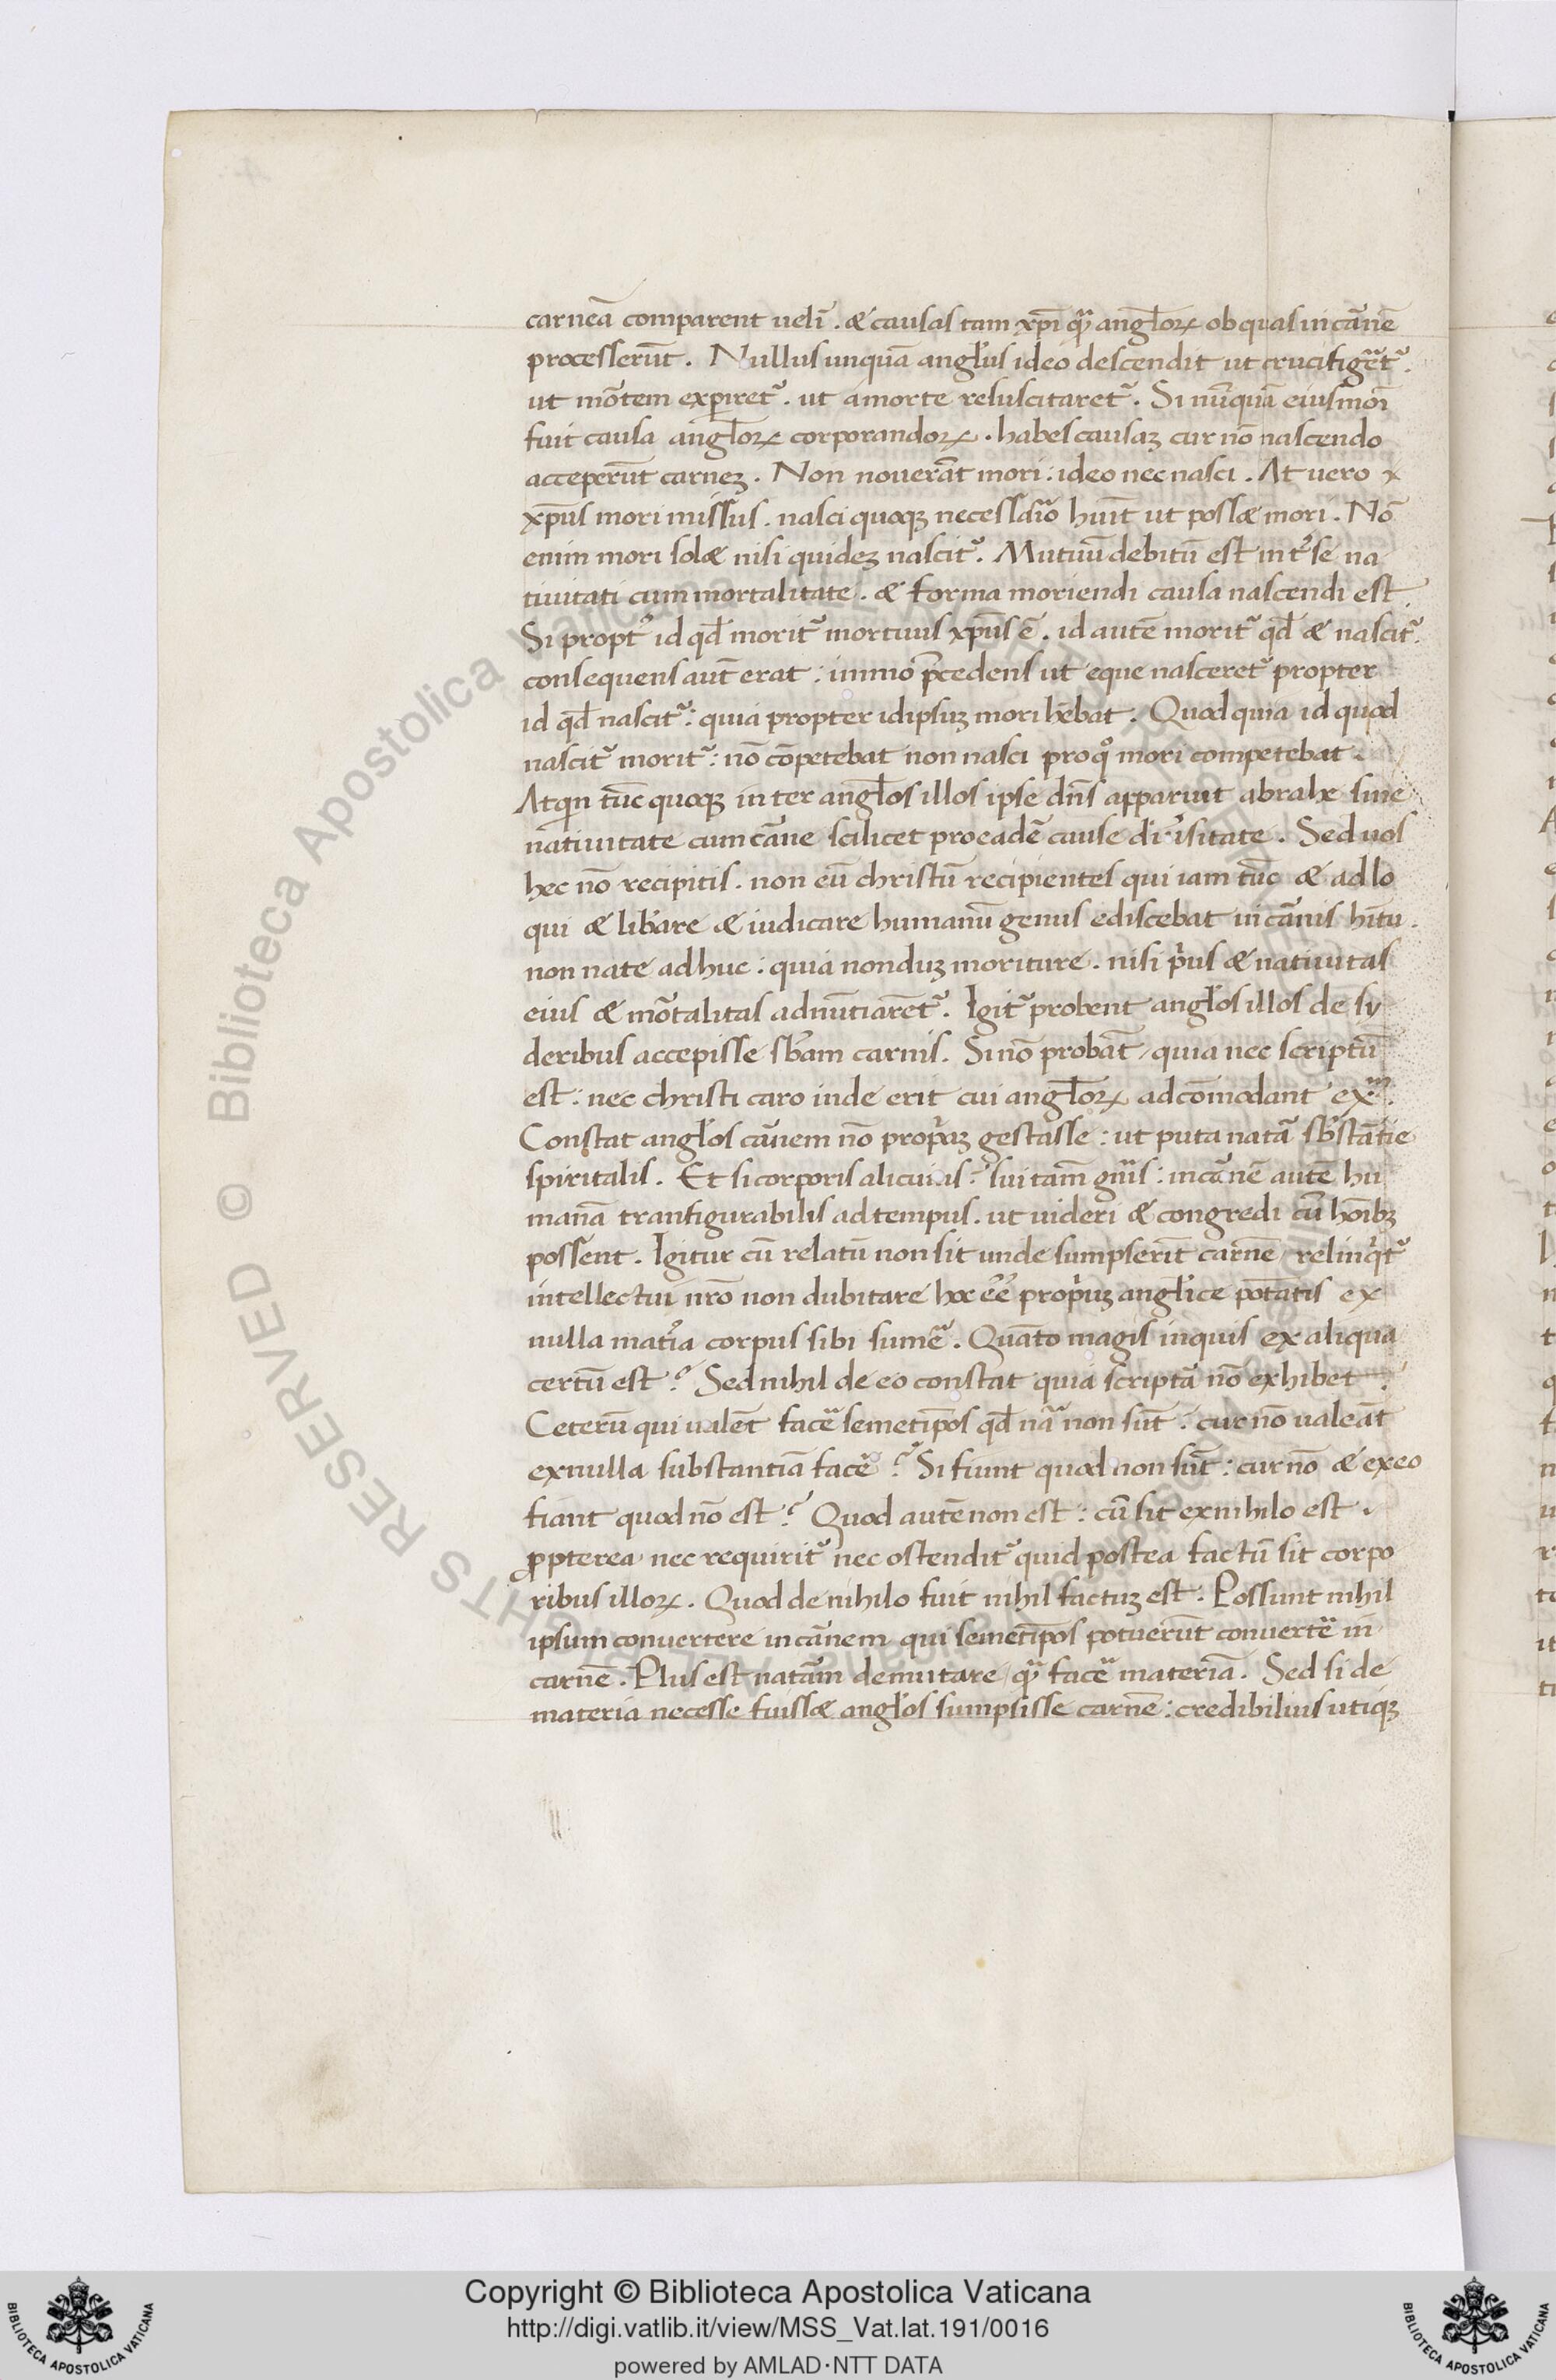 carneā comparent uelī . & causas tam xp̄i q̄ᷓ angl̄oꝝ ob quas in cārnē
processerūt . Nullus unquā angl̄us ideo descendit ut crucifigēt᷑ .
ut mōtem experiret᷑ . ut a morte resuscitaret᷑ . Si nūquā eiusmōi
fuit causa angl̄oꝝ corporandoꝝ . habes causaꝫ cur nō nascendo
acceperūt carneꝫ . Non nouerāt mori : ideo nec nasci . At uero
xp̄us mori missus . nasci quoqꝫ necessārio huīt ut poss& mori . Nō
enim mori sol& nisi quideꝫ nascit᷑ . Mutuū debitū est int᷑ se na
tiuitati cum mortalitate . & forma moriendi causa nascendi est .
Si propt᷑ id qd̄ morit᷑ mortuus xp̄us ē . id autē morit᷑ qd̄ & nascit᷑ .
consequens aut̄ erat : immo p̄cedens ut eque nasceret᷑ propter
id qd̄ nascit᷑ : quia propter idipsuꝫ mori hēbat . Quod quia id quod
nascit᷑ morit᷑ : nō cōpetebat non nasci pro qͦ mori competebat .
Atqin tūc quoqꝫ inter angl̄os illos ipse dn̄s apparuit abrahe sine
natiuitate cum cāne scilicet pro eadē cause diu᷑sitate . Sed uos
hec nō recipitis . non eū christū recipientes qui iam tūc & ad lo
qui & lib̄are & iudicare humanū genus ediscebat in cānis hītu .
non nate adhuc : quia nonduꝫ moriture . nisi p̄us & natiuitas
eius & mōtalitas adnūtiarēt᷑ . Igit᷑ probent angl̄os illos de sy
deribus accepisse sb̄am carnis . Si nō probāt / quia nec scriptū
est : nec christi caro inde erit cui angl̄oꝝ adcōmodant exᵐ .
Constat angl̄os cānem nō prop̄aꝫ gestasse : ut puta natā sb̄stātie
spiritalis . Et si corporis alicuius ? sui tam̄ gn̄is : in cānē autē hu
manā tranfigurabilis ad tempus . ut uideri & congredi cū hōibꝫ
possent . Igitur cū relatū non sit unde sumpserīt carnē / relinq̄t᷑
intellectui nr̄o non dubitare hoc eē᷑ prop̄uꝫ angl̄ice potātis ex
nulla mat᷑ia corpus sibi sumē . Quāto magis inquis ex aliqua
certū est ? Sed nihil de eo constat quia scriptā nō exhibet .
Ceterū qui ualēt facē semetip̄os qd̄ nā non sūt : cur nō ualeāt
ex nulla substantiā facē ? Si fiunt quod non sūt : cur nō & ex eo
fiant quod nō est ? Quod autē non est : cū fit ex nihilo est .
ꝓpterea nec requirit᷑ nec ostendit᷑ quid postea factū sit corpo
ribus illoꝝ . Quod de nihilo fuit nihil factuꝫ est : Possunt nihil
ipsum conuertere in cānem qui semetip̄os potuerūt conuertē in
carnē . Plus est natām demutare / q̄ᷓ facē materiā . Sed si de
materia necesse fuiss& angl̄os sumpsisse carnē : credibilius utiqꝫ
Copyright © Biblioteca Apostolica Vaticana
http://digi.vatlib.it/view/MSS_Vat.lat.191/0016
powered by AMLAD·NTT DATA